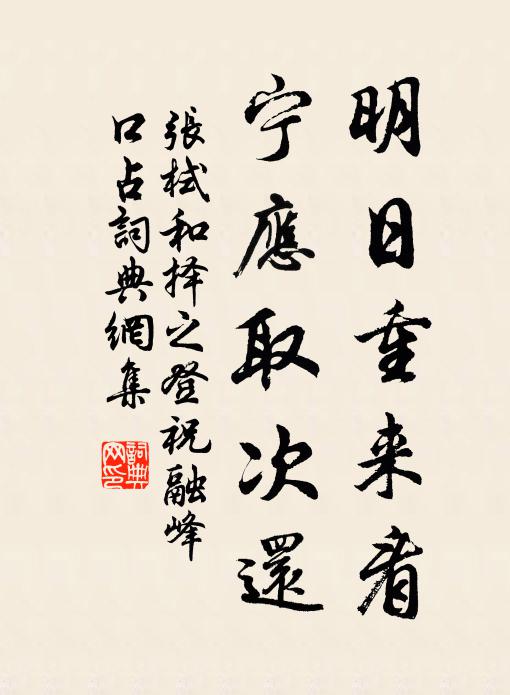 明日重来看
宁應取次還
張栻和择之登祝融峰
口占詞典網集
詞典网印